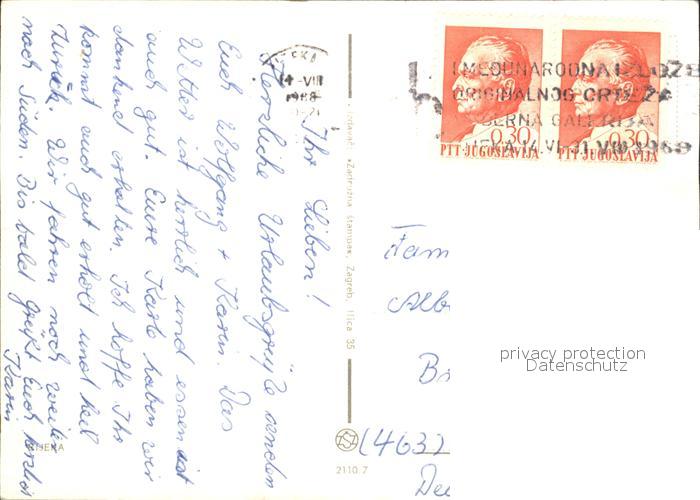 Ihr Lieben!
Herzliche Urlaubsgrüße senden
Euch Wolfgang + Karin. Das
Wetter ist herrlich und essen ist
auch gut. Eure Karte haben wir
dankend erhalten. Ich hoffe Ihr
kommt auch gut erholt und heil
zurück. Wir fahren noch weiter
nach Süden. Bis bald grüßt Euch herzlich
Karin
IJEKA
EKA
-VIII
1968
I MEĐUNARODNA IZLOŽB
ORIGINALNOG CRTEŽA
DERNA GALERIJA
JEKA 14.VI-31.VIII 1968
0.30
PTT·JUGOSLAVIJA
0.30
PTT·JUGOSLAVIJA
Izdavač: »Zantružna štampa«, Zagreb, Ilica 35
2110.7
Fam
Alb
B
(463)
De
privacy protection
Datenschutz